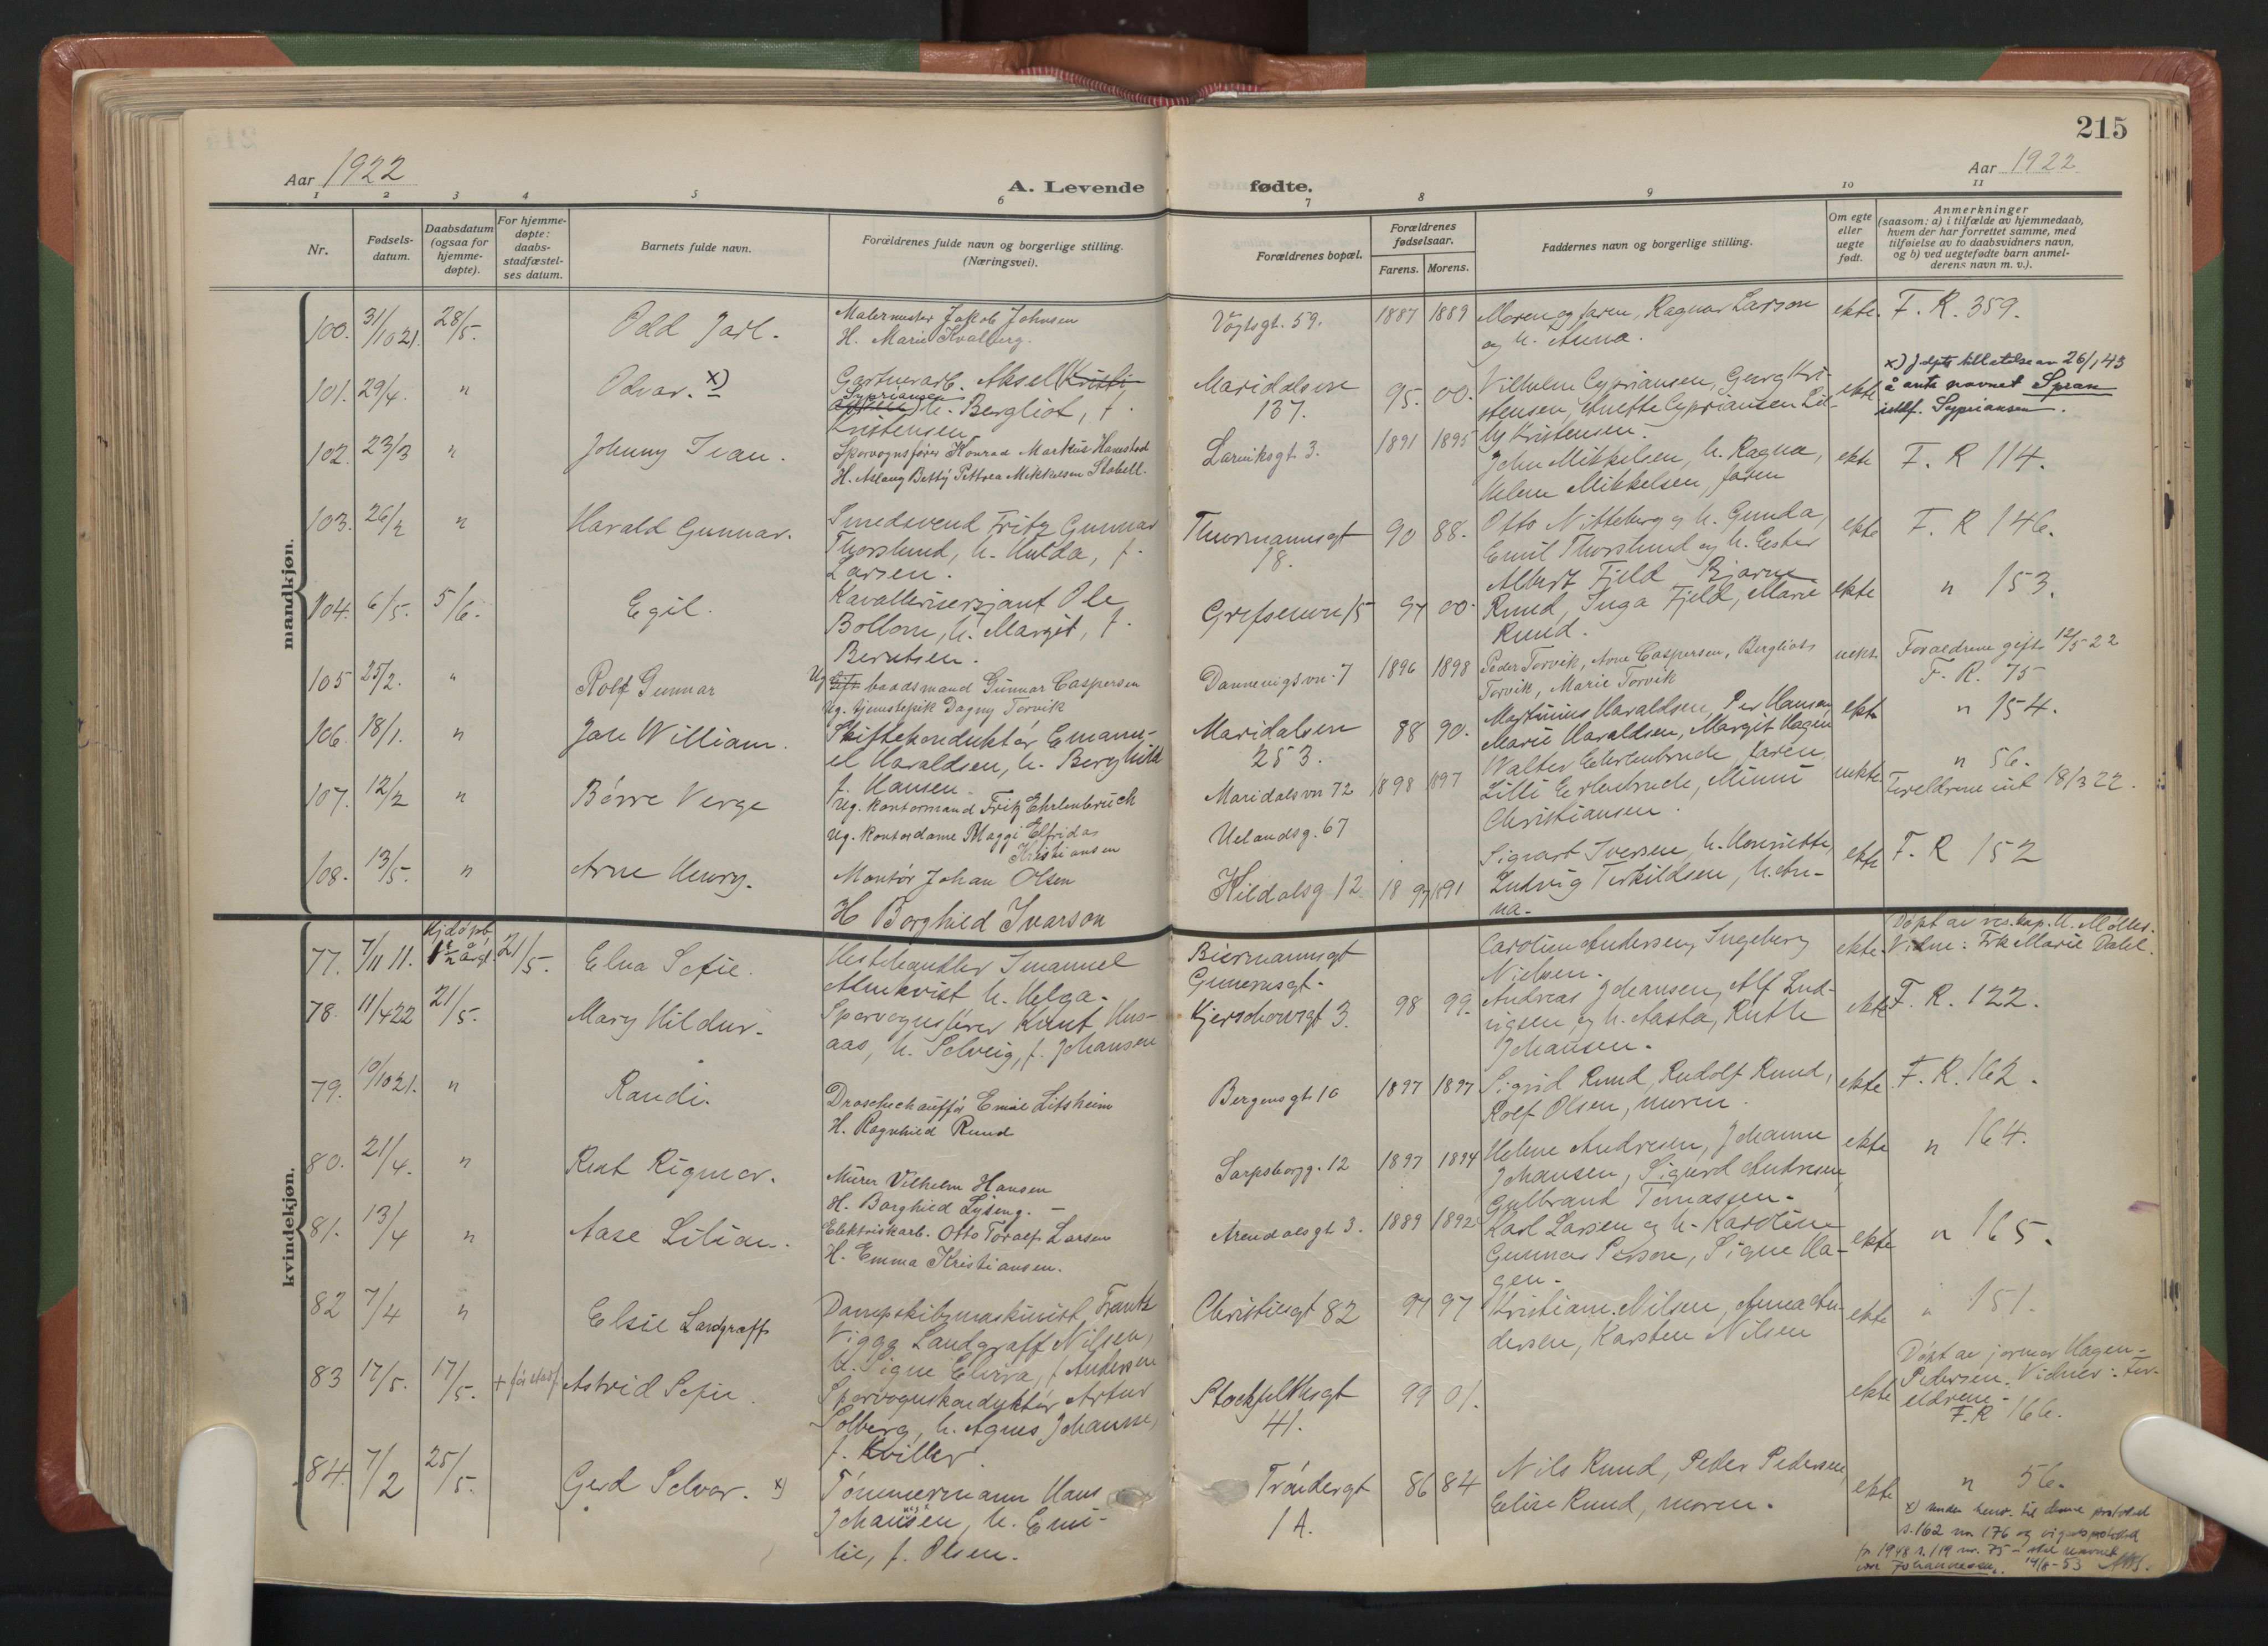 215
Aar 1922
A. Levende fødte.
Aar 1922
1 2 3 4 5 6 7 8 9 10 11
Nr.
Fødsels-
datum.
Daabsdatum
(ogsaa for
hjemme-
døpte).
For hjemme-
døpte:
daabs-
stadfæstel-
ses datum.
Barnets fulde navn.
Forældrenes fulde navn og borgerlige stilling.
(Næringsvei).
Forældrenes bopæl.
Forældrenes
fødselsaar.
Farens. Morens.
Faddernes navn og borgerlige stilling.
Om egte
eller
uegte
født.
Anmerkninger
(saasom: a) i tilfælde av hjemmedaab,
hvem der har forrettet samme, med
tilføielse av to daabsvidners navn,
og b) ved uegtefødte barn anmel-
derens navn m. v.).
mandkjøn.
100. 31/10 21. 28/5. Odd Jarl.
Malermester Jakob Johnsen
H. Marie Kvalberg.
Vogtsgt. 59. 1887 1889
Moren og faren, Ragnar Larson
og h. Anna.
ekte. F. R. 359.
101. 29/4. " Odvar. x)
Gartnerarb. Aksel Kristi-
Sypriansen h. Bergliot, f.
Kristensen
Maridalsvn
137.
95. 00.
Vilhelm Cypriansen, Georg Kri-
stensen, Anette Cypriansen Lil-
ly Kristensen.
ekte
x) J. dpts tillatelse av 26/1 43
å anta navnet Spran
istdf. Sypriansen.
102. 23/3 " Johnny Ivan.
Sporvognsfører Konrad Markus Hanestad
H. Aslaug Betty Pettrea Mikkelsen Stabell.
Larviksgt. 3. 1891 1895
John Mikkelsen, h. Ragna,
Helene Mikkelsen, faren
ekte F. R 114.
103. 26/2 " Harald Gunnar.
Smedsvend Fritz Gunnar
Thorslund, h. Hulda, f.
Larsen.
Thurmannsgt
18.
90 88.
Otto Nitteberg og h. Gunda,
Emil Thorslund og h. Ester
ekte F. R 146.
104. 6/5. 5/6. Egil.
Kavallerisersjant Ole
Bollom, h. Margit, f.
Berntsen.
Grefsenvn 15 97 00.
Albert Fjeld Bjarne
Ruud, Inga Fjeld, Marie
Ruud.
ekte " 153.
105 25/2. " Rolf Gunnar
Ug. baadsmand Gunnar Caspersen
Ug. tjenstepik Dagny Torvik
Dannevigsvn. 7 1896 1898
Peder Torvik, Arne Caspersen, Bergliot
Torvik, Marie Torvik
uekt.
Foreldrene gift 12/5 22
F. R. 75
106. 18/1. " Jan William.
Skiftekonduktør Emanu-
el Haraldsen, h. Berghild
f. Hansen
Maridalsvn
253.
88 90.
Martinius Haraldsen, Per Hansen
Marie Haraldsen, Margit Hagen
ekte " 154.
107. 12/2 " Börre Verge
Ug. Kontormand Fritz Ehrlenbruch
Ug. Kontordame Maggi Elfrida
Kristiansen
Maridalsvn 72
Uelandsg. 67
1898 1897
Walter Ehrlenbruch, Karen,
Lilli Erlenbruch, Minni
Christiansen.
uekte
" 56.
Foreldrene 18/3 22.
108. 13/5. " Arne Henry.
Montør Johan Olsen
H Borghild Ivarson
Kildalsg 12 1897 1891
Sigvart Iversen, h. Henriette,
Ludvig Terkildsen, h. An-
na.
ekte F. R 152
kvindekjøn.
77. 7/11 11. Hj.døpt 21/5. Elna Sofie.
Hestehandler Imanuel
Almkvist h. Helga.
Biermannsgt
Caroline Andersen, Ingeborg
Nielsen.
ekte.
Døpt av res. kap. H. Møller.
Vidne: Frk Marie Dahl.
78. 11/4 22 21/5. Mary Hildur.
Sporvognsfører Knut Hus-
aas, h. Solveig, f. Johansen
Kjerschowsgt 3. 98 99.
Andreas Johansen, Alf Lud-
vigsen og h. Aasta, Ruth
Johansen.
ekte F. R. 122.
79. 19/10 21. " Randi.
Droschechauffør Emil Litsheim
H. Ragnhild Ruud
Bergensgt. 10 1897 1897
Sigrid Ruud, Rudolf Ruud,
Rolf Olsen, moren.
ekte F. R. 162.
80. 21/4. " Rut Rigmor.
Murer Vilhelm Hansen
H. Borghild Lyseng.
Sarpsborgg. 12 1897 1894
Helene Andresen, Johanne
Johansen, Sigurd Andresen
Gulbrand Tomassen.
ekte " 164.
81. 13/4 " Aase Lilian.
Elektriskarb. Otto Toralf Larsen
H. Emma Kristiansen.
Arendalsgt 3. 1889 1892
Karl Larsen og h. Karoline
Gunnar Persson, Signe Ha-
gen.
ekte " 165.
82 7/4 " Elsie Landgraff
Dampskibsmaskinist Frantz
Viggo Landgraff Nilsen,
h. Signe Elvira, f. Andersen
Christiesgt 82 94 97
Kristiane Nilsen, Anna An-
dersen, Karsten Nilsen
ekte " 151.
83 17/5. 17/5. + før stadf. Astrid Sofie.
Sporvognskonduktør Artur
Solberg, h. Agnes Johanne,
f. Kviller.
Stockflethsgt
41.
99 01.
ekte
Døpt av jormor Hagen-
Pedersen. Vidner: For-
eldrene.
F. R 166.
84. 7/2 25/5. Gerd Solvor. x)
Tömmermann Hans
Johansen, h. Emi-
lie, f. Olsen.
Tröndergt
1 A.
86 84
Nils Ruud, Peder Pedersen
Elise Ruud, moren.
ekte " 56.
x) under henv. til denne protokoll
s. 162 nr 176 og vigselsprotokoll
for 1948 s. 119 nr. 75 – skal navnet
være Johannessen. 14/8-53